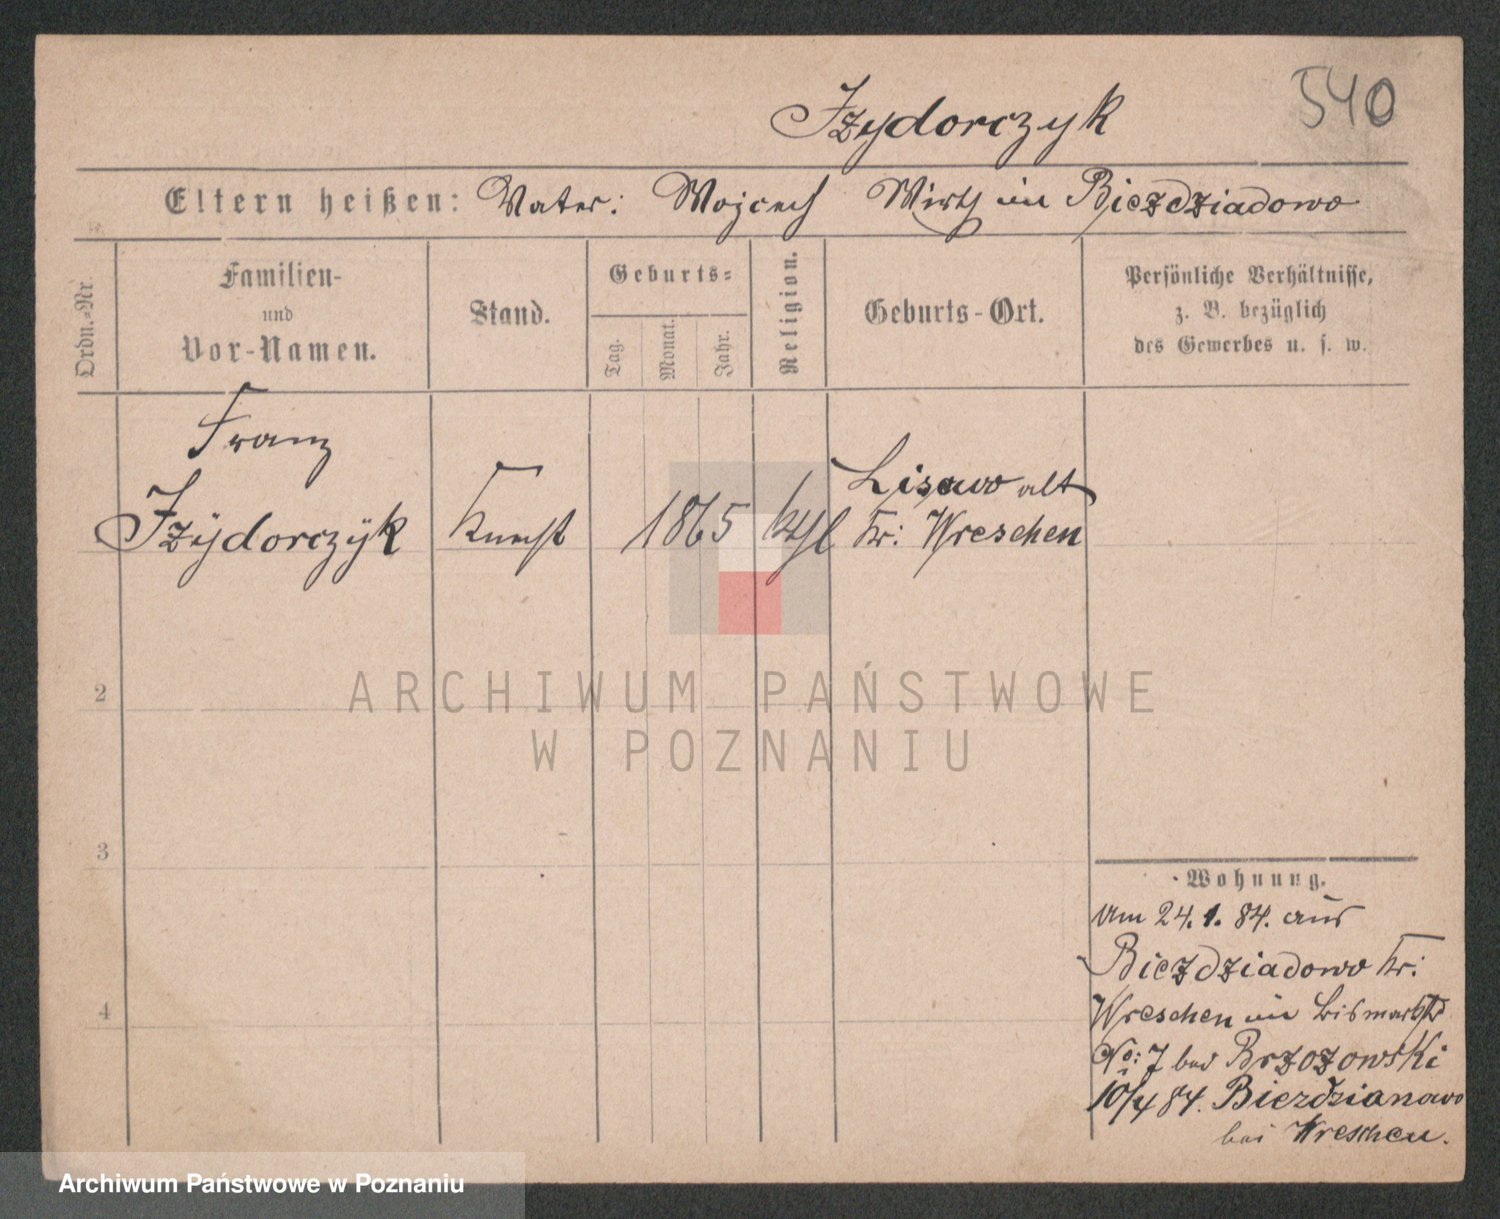 540
Izydorczyk
Eltern heißen: Vater: Wojcech Wirth in Biezdziadowo
Ordn.-Nr
Familien-
und
Vor-Namen.
Stand.
Geburts-
Tag.
Monat.
Jahr.
Religion.
Geburts-Ort.
Persönliche Verhältnisse,
z. B. bezüglich
des Gewerbes u. s. w.
Franz
Izydorczyk
Knecht
1865
ktl
Lisewo alt
Kr: Wreschen
2
3
4
ARCHIWUM PAŃSTWOWE
W POZNANIU
Wohnung.
Am 24.1.84. aus
Biezdziadowo Kr:
Wreschen in Bismarkstr
No: 7 bei Brzozowski
10/4 84. Biezdzianowo
bei Wreschen.
Archiwum Państwowe w Poznaniu